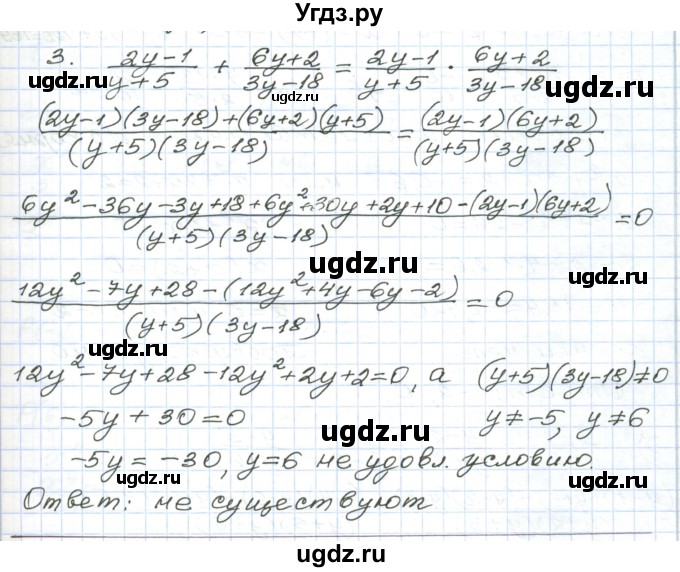 Угдз.ру
3. (2y-1)/(y+5) + (6y+2)/(3y-18) = (2y-1)/(y+5) · (6y+2)/(3y-18)
ugdz.ru ugdz.ru
((2y-1)(3y-18)+(6y+2)(y+5))/((y+5)(3y-18)) = ((2y-1)(6y+2))/((y+5)(3y-18))
ugdz.ru
(6y²-36y-3y+18+6y²+30y+2y+10-(2y-1)(6y+2))/((y+5)(3y-18)) = 0
ugdz.ru ugdz.ru
(12y²-7y+28-(12y²+4y-6y-2))/((y+5)(3y-18)) = 0
ugdz.ru
12y²-7y+28-12y²+2y+2=0, а (y+5)(3y-18)≠0
-5y+30=0 y≠-5, y≠6
ugdz.ru
-5y=-30, y=6 не удовл. условию.
ugdz.ru
Ответ: не существуют
ugdz.ru
ugdz.ru